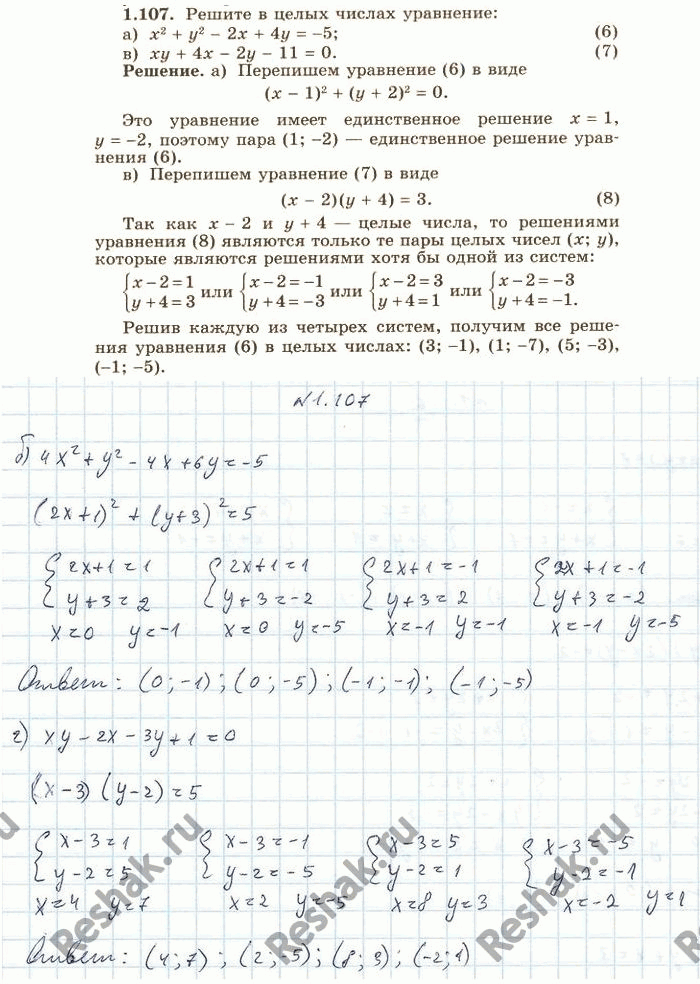 1.107. Решите в целых числах уравнение:
а) x² + y² − 2x + 4y = −5; (6)
в) xy + 4x − 2y − 11 = 0. (7)
Решение. а) Перепишем уравнение (6) в виде
(x − 1)² + (y + 2)² = 0.
Это уравнение имеет единственное решение x = 1,
y = −2, поэтому пара (1; −2) — единственное решение урав-
нения (6).
в) Перепишем уравнение (7) в виде
(x − 2)(y + 4) = 3. (8)
Так как x − 2 и y + 4 — целые числа, то решениями
уравнения (8) являются только те пары целых чисел (x; y),
которые являются решениями хотя бы одной из систем:
{x − 2 = 1 или {x − 2 = −1 или {x − 2 = 3 или {x − 2 = −3
{y + 4 = 3 {y + 4 = −3 {y + 4 = 1 {y + 4 = −1.
Решив каждую из четырех систем, получим все реше-
ния уравнения (6) в целых числах: (3; −1), (1; −7), (5; −3),
(−1; −5).
N1.107
б) 4x² + y² − 4x + 6y = −5
(2x+1)² + (y+3)² = 5
{2x+1=1 {2x+1=1 {2x+1=−1 {2x+1=−1
{y+3=2 {y+3=−2 {y+3=2 {y+3=−2
x=0 y=−1 x=0 y=−5 x=−1 y=−1 x=−1 y=−5
Ответ: (0;−1); (0;−5); (−1;−1); (−1;−5)
г) xy − 2x − 3y + 1 = 0
(x−3)(y−2) = 5
{x−3=1 {x−3=−1 {x−3=5 {x−3=−5
{y−2=5 {y−2=−5 {y−2=1 {y−2=−1
x=4 y=7 x=2 y=−5 x=8 y=3 x=−2 y=1
Ответ: (4;7); (2;−5); (8;3); (−2;1)
Reshak.ru
Reshak.ru
Reshak.ru